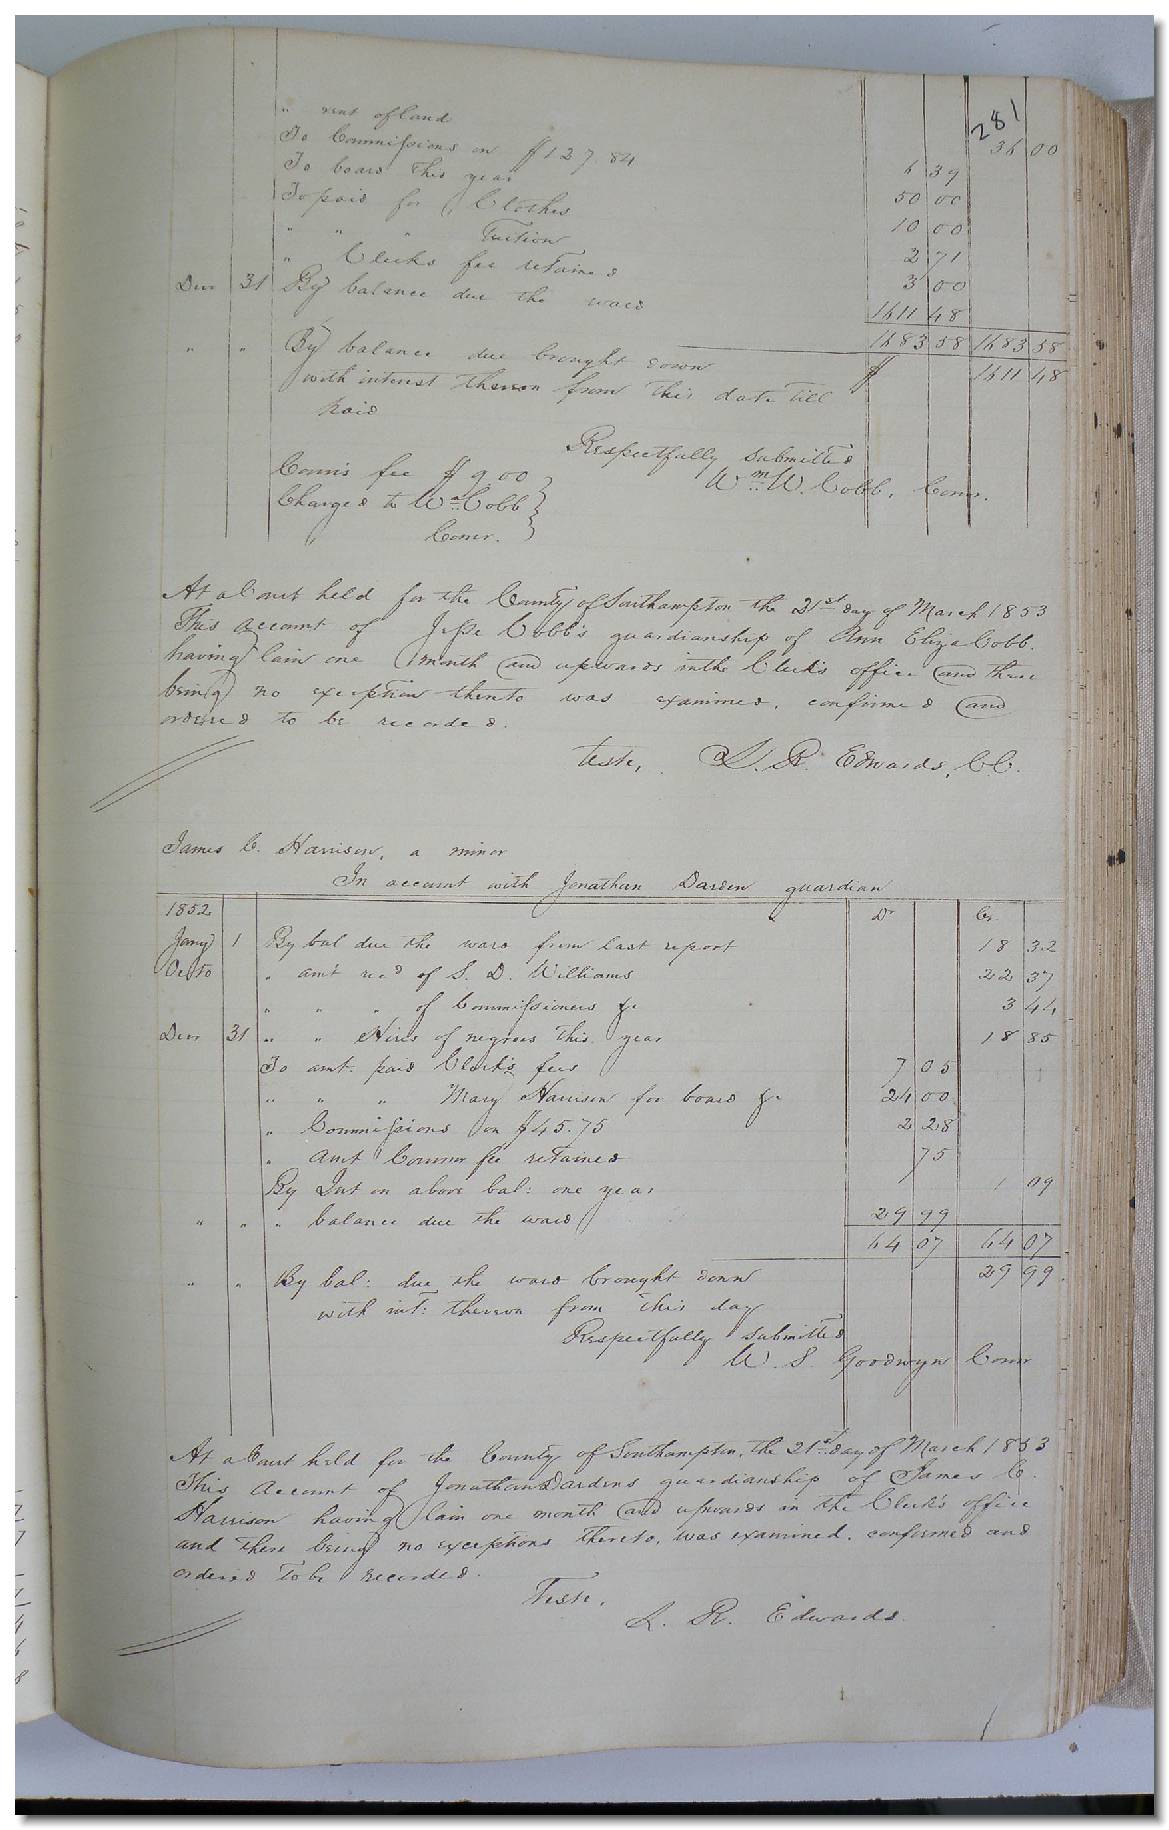 281
" rent of land 36 00
To Commissions on $127.84 6 39
To board this year 50 00
To paid for Clothes 10 00
" " " Tuition 2 71
" Clerks fee retained 3 00
Decr 31 By balance due the ward 1611 48
1683 58 1683 58
" " By balance due brought down $ 1611 48
with interest thereon from this date till
paid
Respectfully submitted
Wm W. Cobb, Comr.
Comr's fee $9.00
Charged to Wm Cobb
Comr.
At a Court held for the County of Southampton the 21st day of March 1853
This account of Jesse Cobb's guardianship of Ann Eliza Cobb.
having lain one month and upwards in the Clerk's office and there
being no exception thereto was examined, confirmed and
ordered to be recorded.
Teste, L. R. Edwards, CC.
James C. Harrison, a minor
In account with Jonathan Darden guardian
1852 Dr Cr.
Jany 1 By bal due the ward from last report 18 32
Octo " amt recd of S. D. Williams 22 37
" " " of Commissioners &c 3 44
Decr 31 " " Hires of negroes this year 18 85
To amt. paid Clerk's fees 7 05
" " " Mary Harrison for board &c 24 00
" Commissions on $45.75 2 28
" Amt Commr fee retained 75
By Int on above bal: one year 1 09
" " " balance due the ward 29 99
64 07 64 07
" " By bal: due the ward brought down 29 99
with int: thereon from this day
Respectfully submitted
W. S. Goodwyn Comr
At a Court held for the County of Southampton, the 21st day of March 1853
This Account of Jonathan Dardens guardianship of James C.
Harrison having lain one month and upwards in the Clerk's office
and there being no exceptions thereto, was examined, confirmed and
ordered to be recorded.
Teste,
L. R. Edwards.